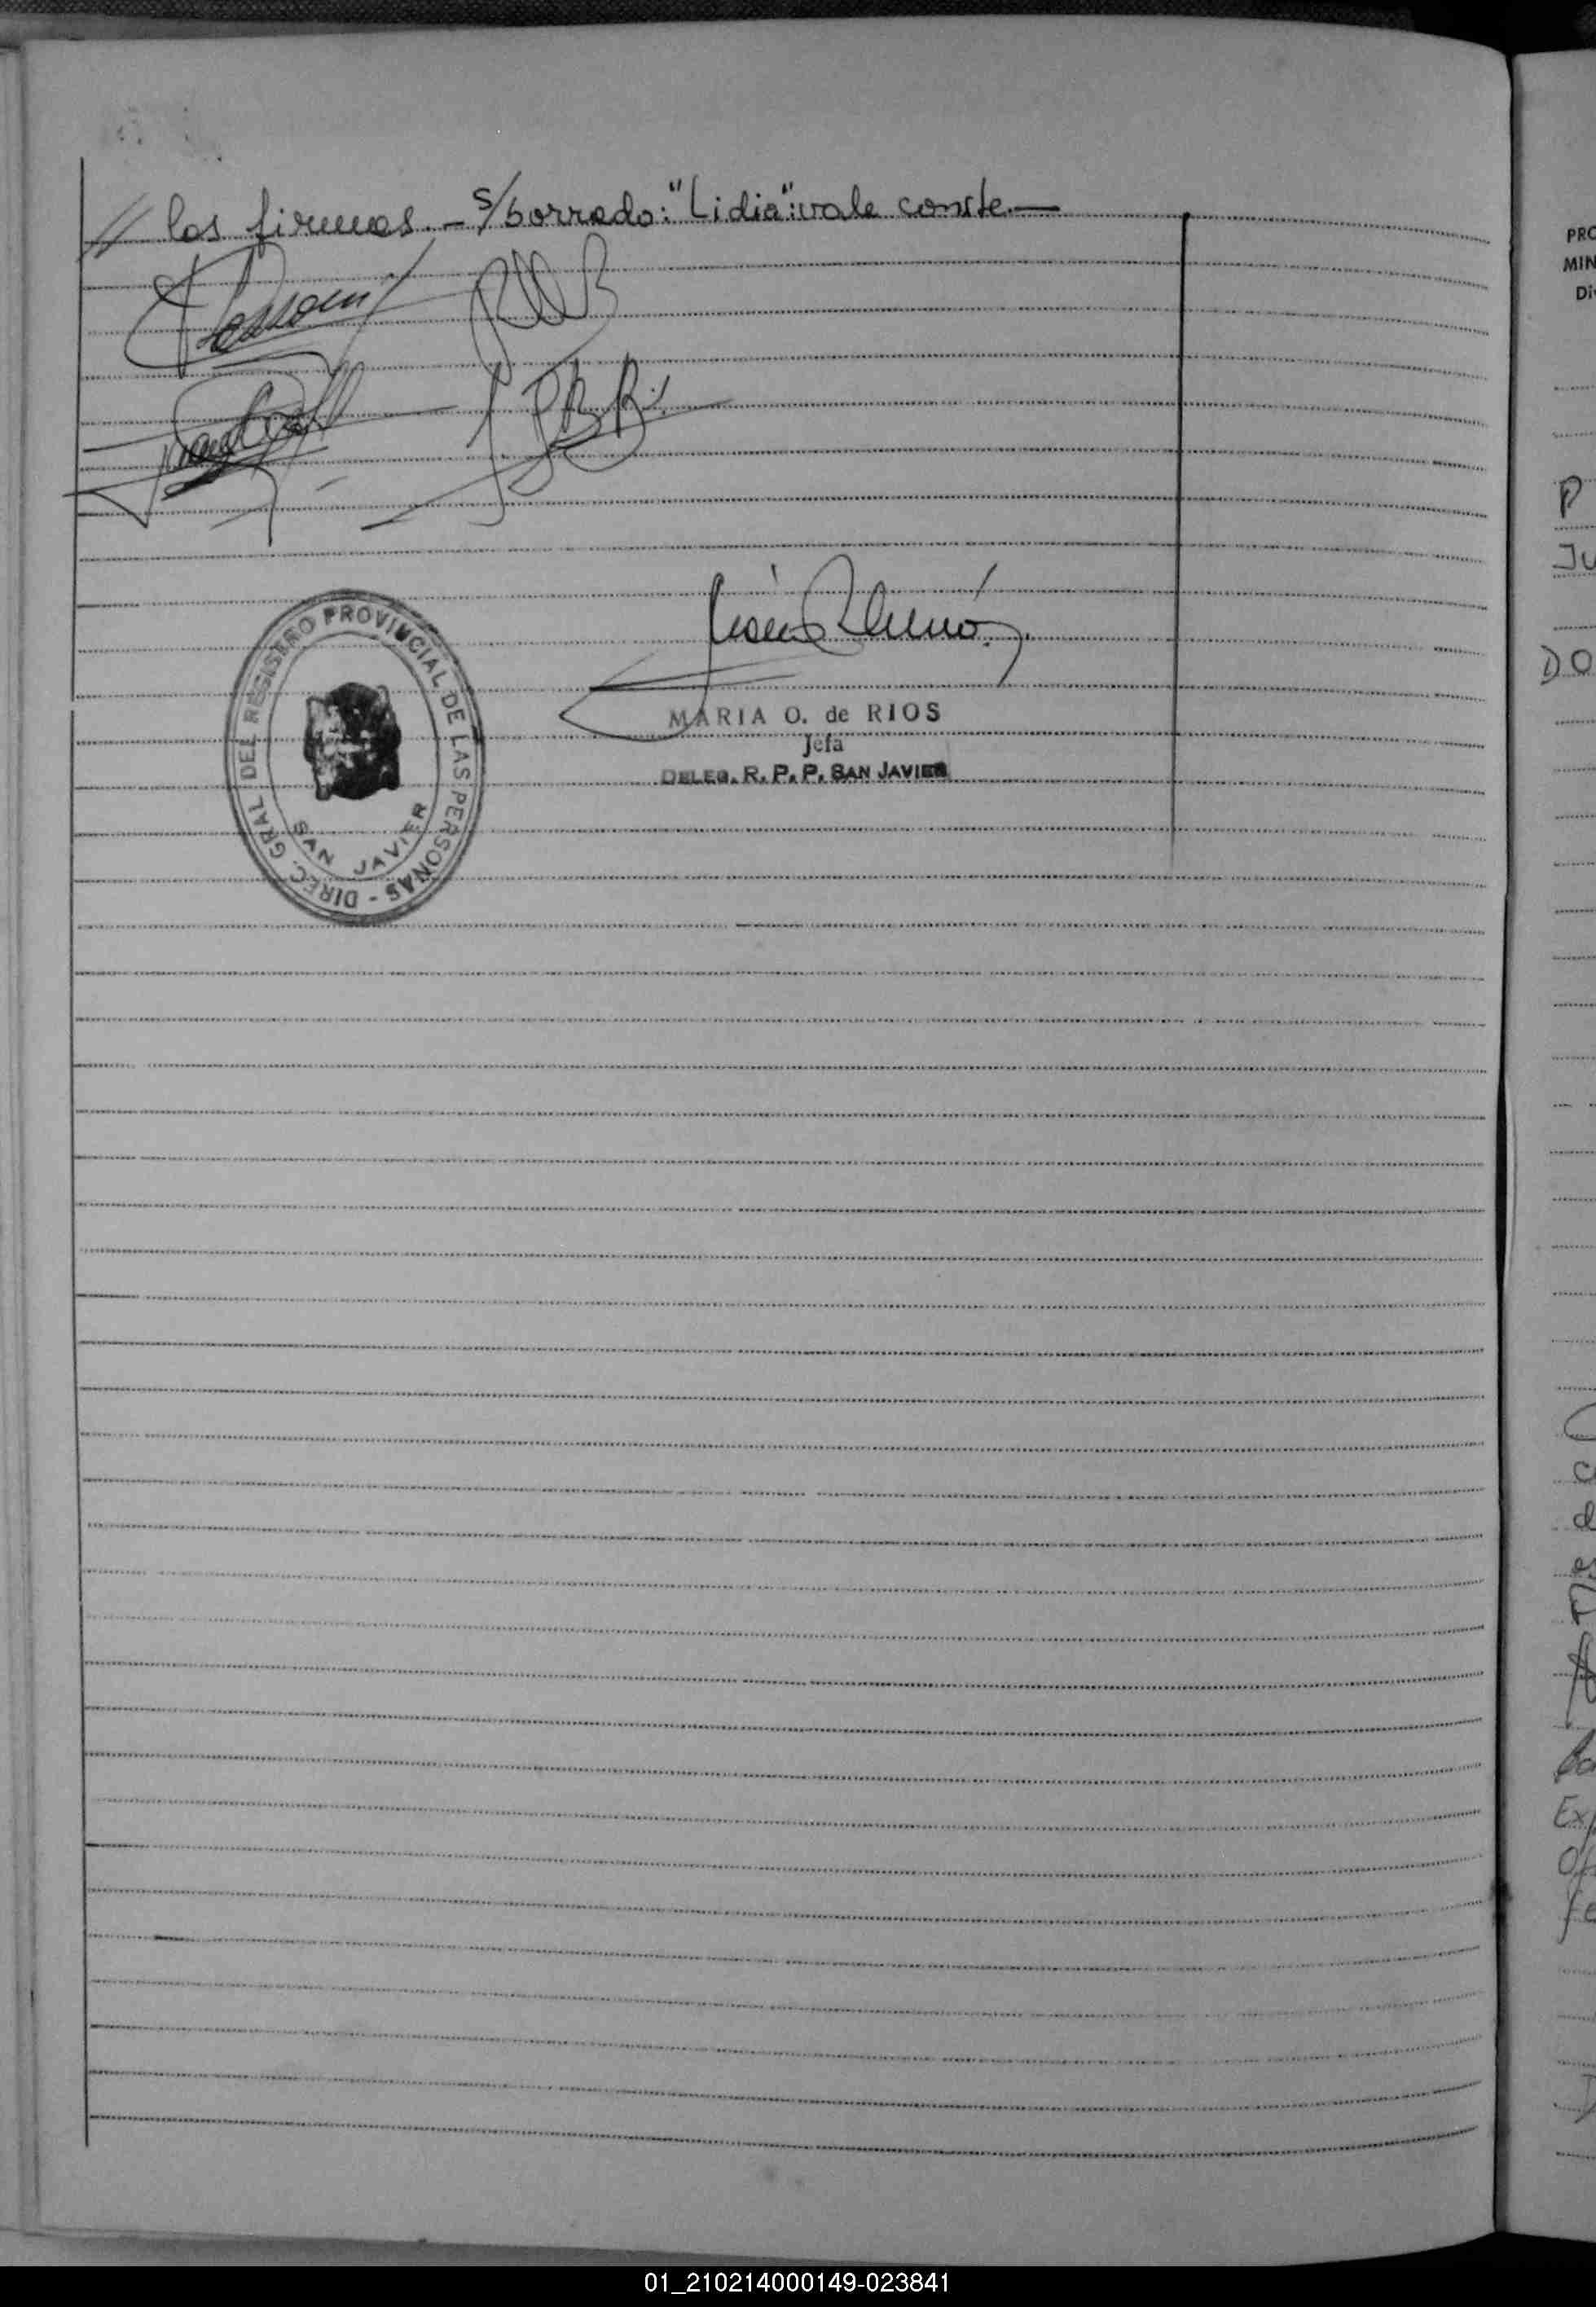 // las firmas.- s/borrado: "Lidia": vale conste.—
MARIA O. de RIOS
Jefa
DELEG. R. P. P. SAN JAVIER
DIREC. GRAL DEL REGISTRO PROVINCIAL DE LAS PERSONAS -
SAN JAVIER
PRO
MIN
Di
P
Ju
DO
Exp
Of
fe
01_210214000149-023841